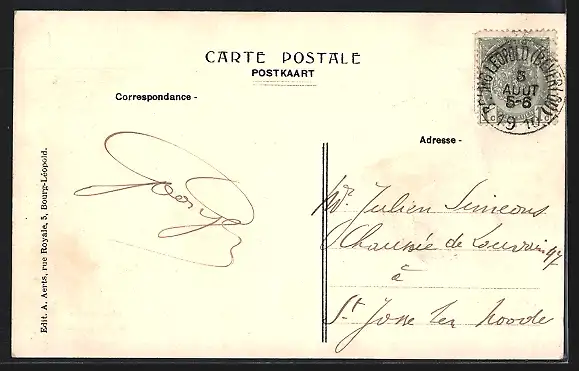 CARTE POSTALE
POSTKAART
Correspondance -
Adresse -
BOURG-LEOPOLD (BEVERLOO)
5
AOUT
5-6
1910
Mr. Julien Simeons
Chaussée de Louvain 97
à
St Josse ten Noode
Edit. A. Aerts, rue Royale, 5, Bourg-Léopold.